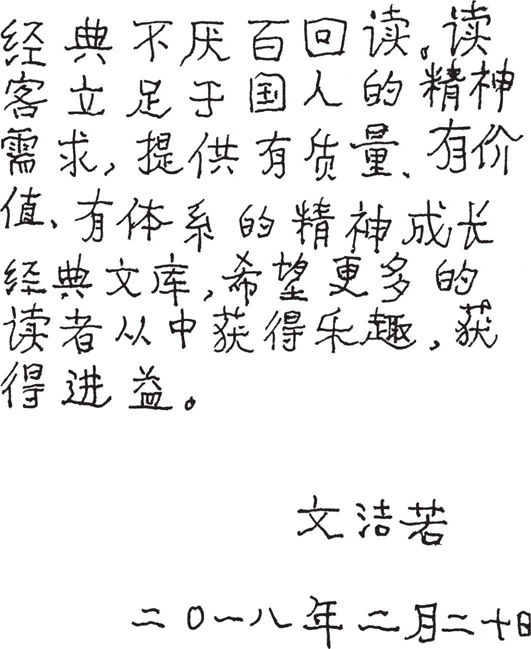 经典不厌百回读。读
客立足于国人的精神
需求,提供有质量、有价
值、有体系的精神成长
经典文库,希望更多的
读者从中获得乐趣,获
得进益。
文洁若
二〇一八年二月二十日